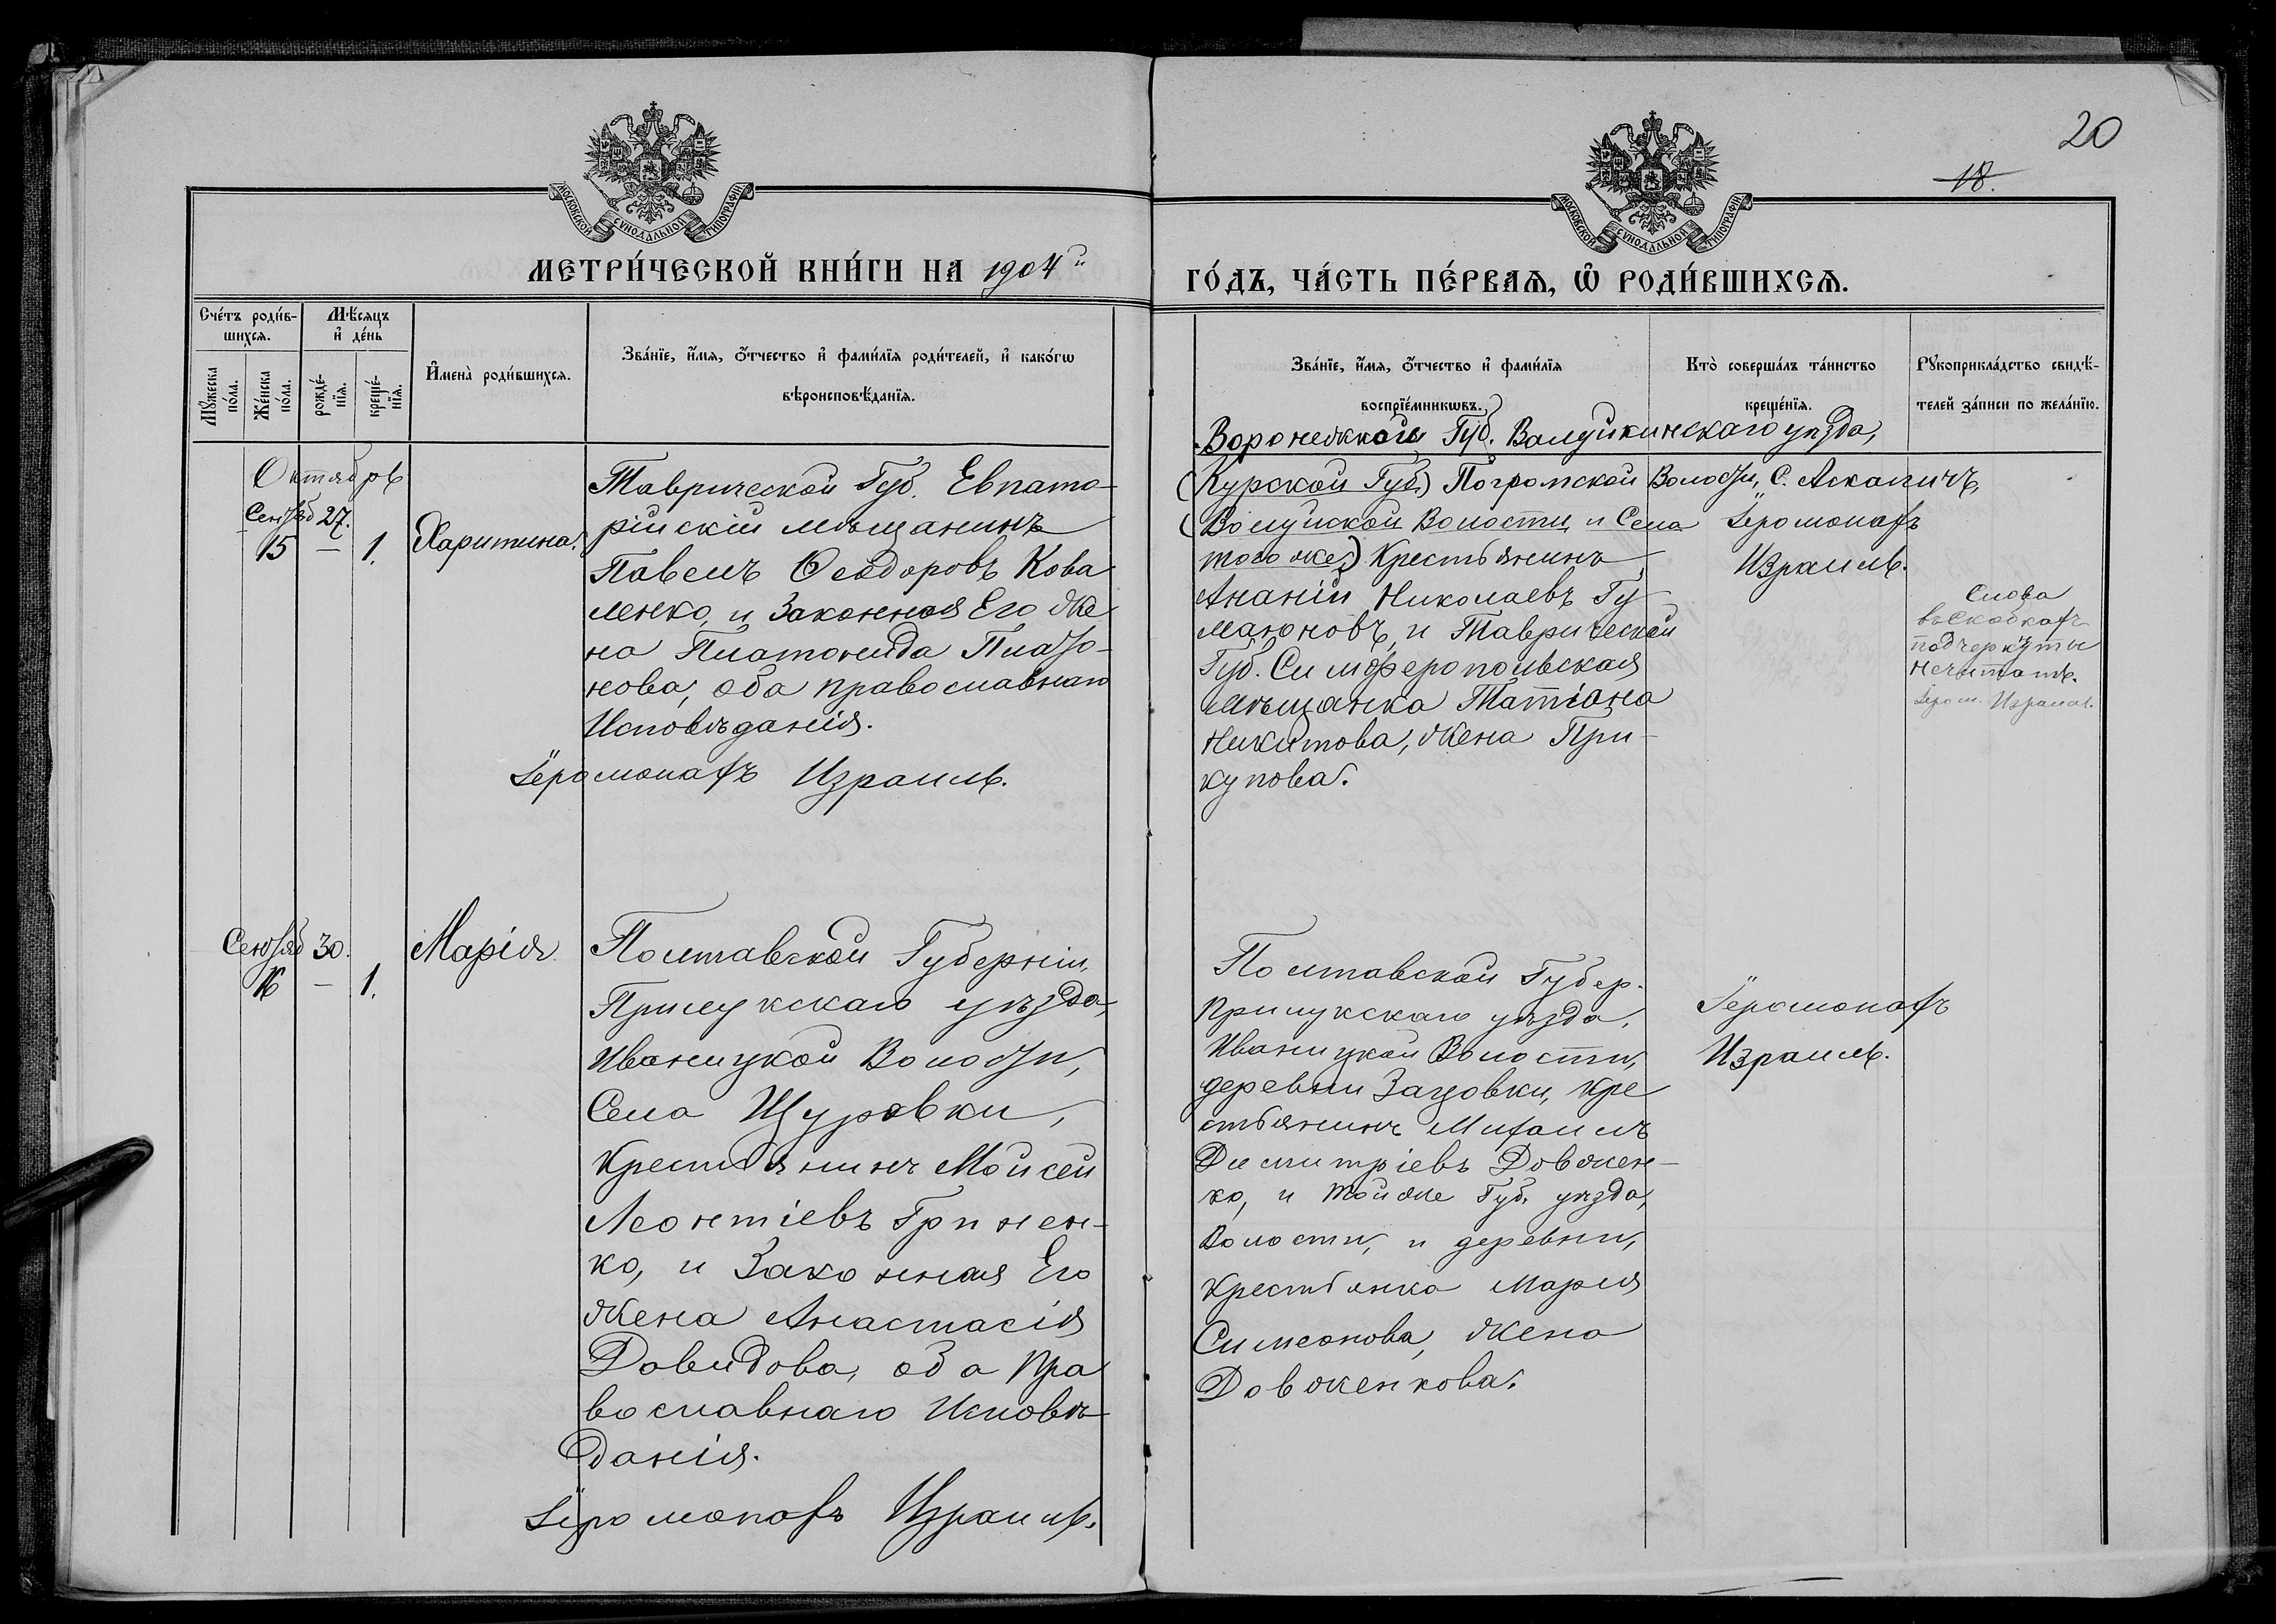 20
18.
МОСКОВСКОЙ СѴНОДАЛЬНОЙ ТИПОГРАФІИ
МОСКОВСКОЙ СѴНОДАЛЬНОЙ ТИПОГРАФІИ
МЕТРИ́ЧЕСКОЙ КНИ́ГИ НА 1904й
ГО́ДЪ, ЧА́СТЬ ПЕ́РВАѦ, Ѡ РОДИ́ВШИХСѦ.
Сче́тъ роди́в-
шихсѧ.
Мѣ́сѧцъ
и҆ де́нь
Мꙋ́жеска
по́ла.
Же́нска
по́ла.
рожде́-
нїѧ.
креще́-
нїѧ.
И҆мена̀ роди́вшихсѧ.
Зва́нїе, и҆́мѧ, ѻ҆́тчество и҆ фами́лїѧ роди́телей, и҆ како́гѡ
вѣроисповѣ́данїѧ.
Зва́нїе, и҆́мѧ, ѻ҆́тчество и҆ фами́лїѧ
воспрїе́мникѡвъ.
Кто̀ соверша́лъ та́инство
креще́нїѧ.
Рꙋкоприкла́дство свидѣ́-
телей за́писи по жела́нїю.
Октябрь
Сентяб 27.
15 — 1.
Харитина.
Таврической Губ. Евпато-
рійскій мѣщанинъ
Павелъ Ѳеодоровъ Кова
ленко, и Законная Его Же
на Платонида Плато-
нова, оба православнаго
Исповѣданія.
Іеромонахъ Израиль.
Воронежской Губ. Валуйкинскаго уѣзда,
(Курской Губ.) Погромской Волости, С.
(Волуйской Волости и Села
того же.) Крестьянинъ
Ананій Николаевъ Гу
малюновъ, и Таврической
Губ. Симферопольская
Мѣщанка Татіана
Никитова, Жена При-
купова.
Іеромонахъ
Израиль.
Слова
въ Скобкахъ
подчеркуты
нечитать.
Іером. Израиль.
Сентяб 30.
16 — 1.
Марія
Полтавской Губерніи,
Прилукскаго уѣзда,
Иваницкой Волости,
Села Щуровки,
Крестьянинъ Мойсей
Леонтіевъ Гринен-
ко, и Законная Его
Жена Анастасія
Давидова, оба Пра
вославнаго Исповѣ-
данія.
Іеромонахъ Израиль.
Полтавской Губер.
Прилукскаго уѣзда,
Иваницкой Волости,
деревни Зацовки, Кре
стьянинъ Михаилъ
Димитріевъ Довжен-
ко, и тойже Губ. уѣзда,
Волости, и деревни,
Крестьянка Марія
Симеонова, Жена
Довженкова.
Іеромонахъ
Израиль.